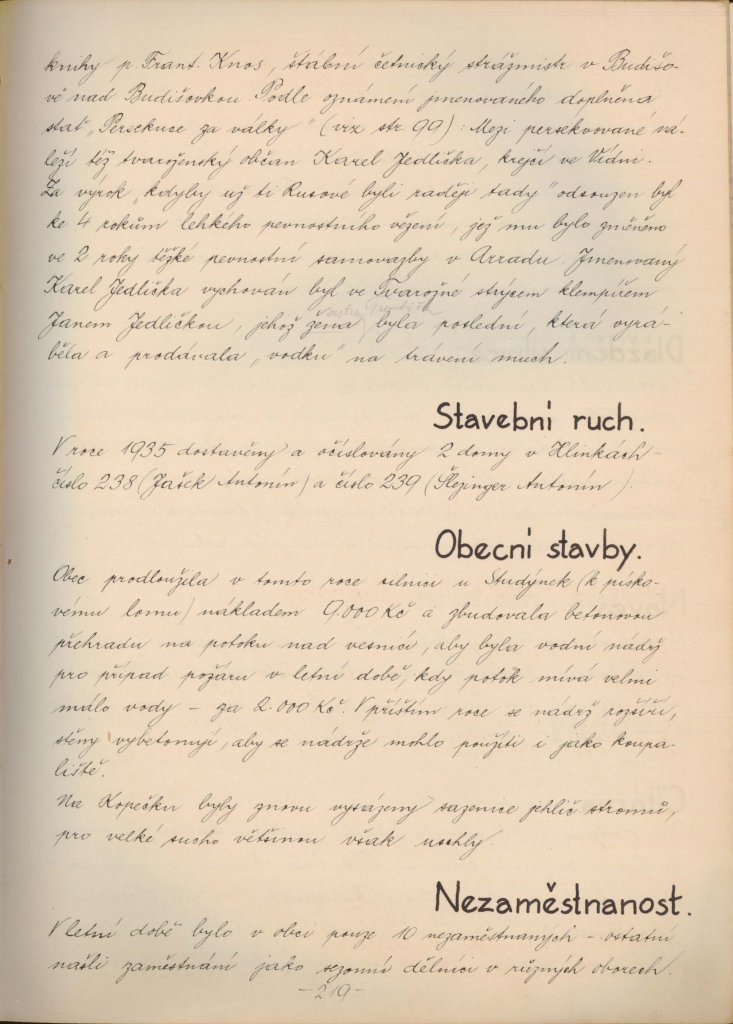 knihy p. Frant. Knos, štábní četnický strážmistr v Budišo-
vě nad Budišovkou. Podle oznámení jmenovaného doplněna
stať „Persekuce za války" (viz str. 99): Mezi persekvované ná-
leží též tvaroženský občan Karel Jedlička, krejčí ve Vídni.
Za výrok „kdyby už ti Rusové byli raději tady" odsouzen byl
ke 4 rokům lehkého pevnostního vězení, jež mu bylo změněno
ve 2 roky těžké pevnostní samovazby v Arradu. Jmenovaný
Karel Jedlička vychován byl ve Tvarožné strýcem klempířem
sestra
Janem Jedličkou, jehož žena byla poslední, která vyrá-
běla a prodávala „vodku" na trávení much.
Stavební ruch.
V roce 1935 dostavěny a očíslovány 2 domy v Hlinkách -
číslo 238 (Jašek Antonín) a číslo 239 (Šlezinger Antonín).
Obecní stavby.
Obec prodloužila v tomto roce silnici u Studýnek (k písko-
vému lomu) nákladem 9.000 Kč a zbudovala betonovou
přehradu na potoku nad vesnicí, aby byla vodní nádrž
pro případ požáru v letní době, kdy potok mívá velmi
málo vody - za 2.000 Kč. V příštím roce se nádrž rozšíří,
stěny vybetonují, aby se nádrže mohlo použíti i jako koupa-
liště.
Na Kopečku byly znovu vysázeny sazenice jehlič. stromů,
pro velké sucho většinou však uschly.
Nezaměstnanost.
V letní době bylo v obci pouze 10 nezaměstnaných - ostatní
našli zaměstnání jako sezonní dělníci v různých oborech.
- 219 -